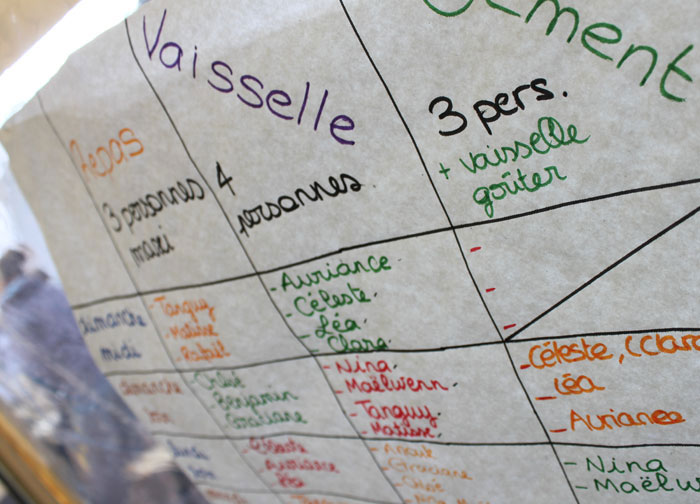 Vaisselle
ement
Repas
3 personnes
maxi
4
personnes
3 pers.
+ vaisselle
goûter
dimanche
midi
- Tanguy
- Matisse
- Rafaël
- Auriance
- Céleste
- Léa
- Clara
dimanche
soir
- Chloé
- Benjamin
- Graciane
- Nina
- Maëlwenn
- Tanguy
- Matisse
- Céleste, (Clara
- Léa
- Auriance
lundi
- Céleste
- Auriance
- Léa
- Graciane
- Nina
- Maëlw